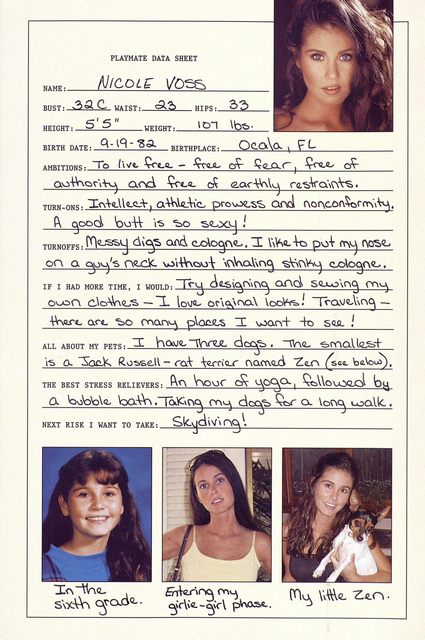 PLAYMATE DATA SHEET
NAME: NICOLE VOSS
BUST: 32C WAIST: 23 HIPS: 33
HEIGHT: 5'5" WEIGHT: 107 lbs.
BIRTH DATE: 9-19-82 BIRTHPLACE: Ocala, FL
AMBITIONS: To live free - free of fear, free of
authority and free of earthly restraints.
TURN-ONS: Intellect, athletic prowess and nonconformity.
A good butt is so sexy!
TURNOFFS: Messy digs and cologne. I like to put my nose
on a guy's neck without inhaling stinky cologne.
IF I HAD MORE TIME, I WOULD: Try designing and sewing my
own clothes - I love original looks! Traveling -
there are so many places I want to see!
ALL ABOUT MY PETS: I have three dogs. The smallest
is a Jack Russell-rat terrier named Zen (see below).
THE BEST STRESS RELIEVERS: An hour of yoga, followed by
a bubble bath. Taking my dogs for a long walk.
NEXT RISK I WANT TO TAKE: Skydiving!
In the
sixth grade.
Entering my
girlie-girl phase.
My little Zen.